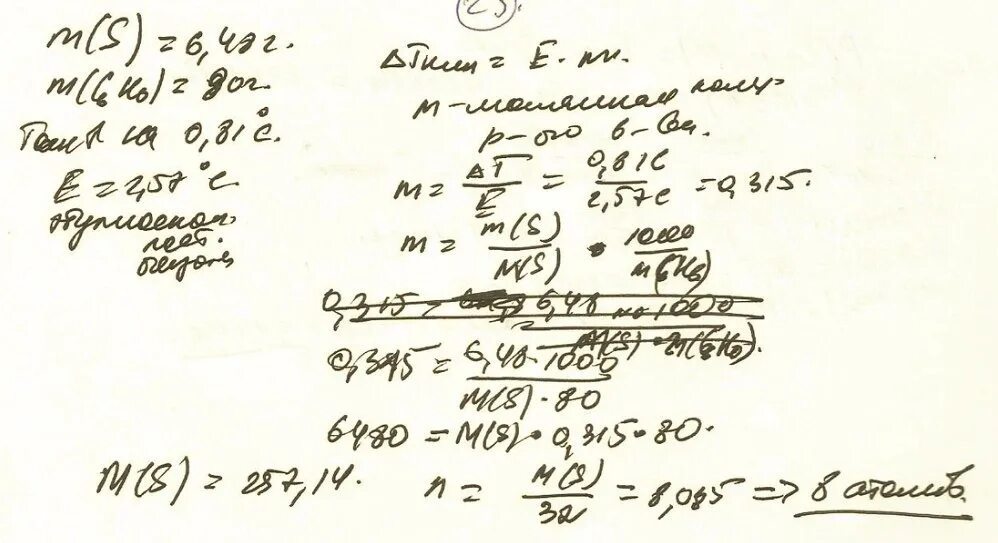 23.
m(S) = 6,48 г.
m(C6H6) = 80 г.
Ткип ↑ на 0,81°C.
E = 2,57°C
эбулиоскоп.
пост.
бензола
ΔTкип = E · m.
m – моляльная конц.
р-ого в-ва.
m = ΔT/E = 0,81C/2,57C = 0,315.
m = m(S)/M(S) · 1000/m(C6H6)
0,315 = 6,48 · 1000 / M(S) · 80
6480 = M(S) · 0,315 · 80.
M(S) = 257,14.
n = M(S)/32 = 8,035 => 8 атомов.